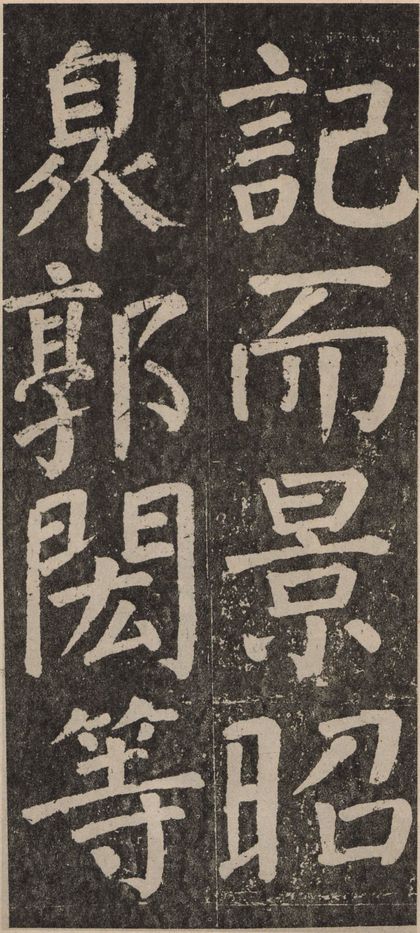 記而景昭
臮郭閎等